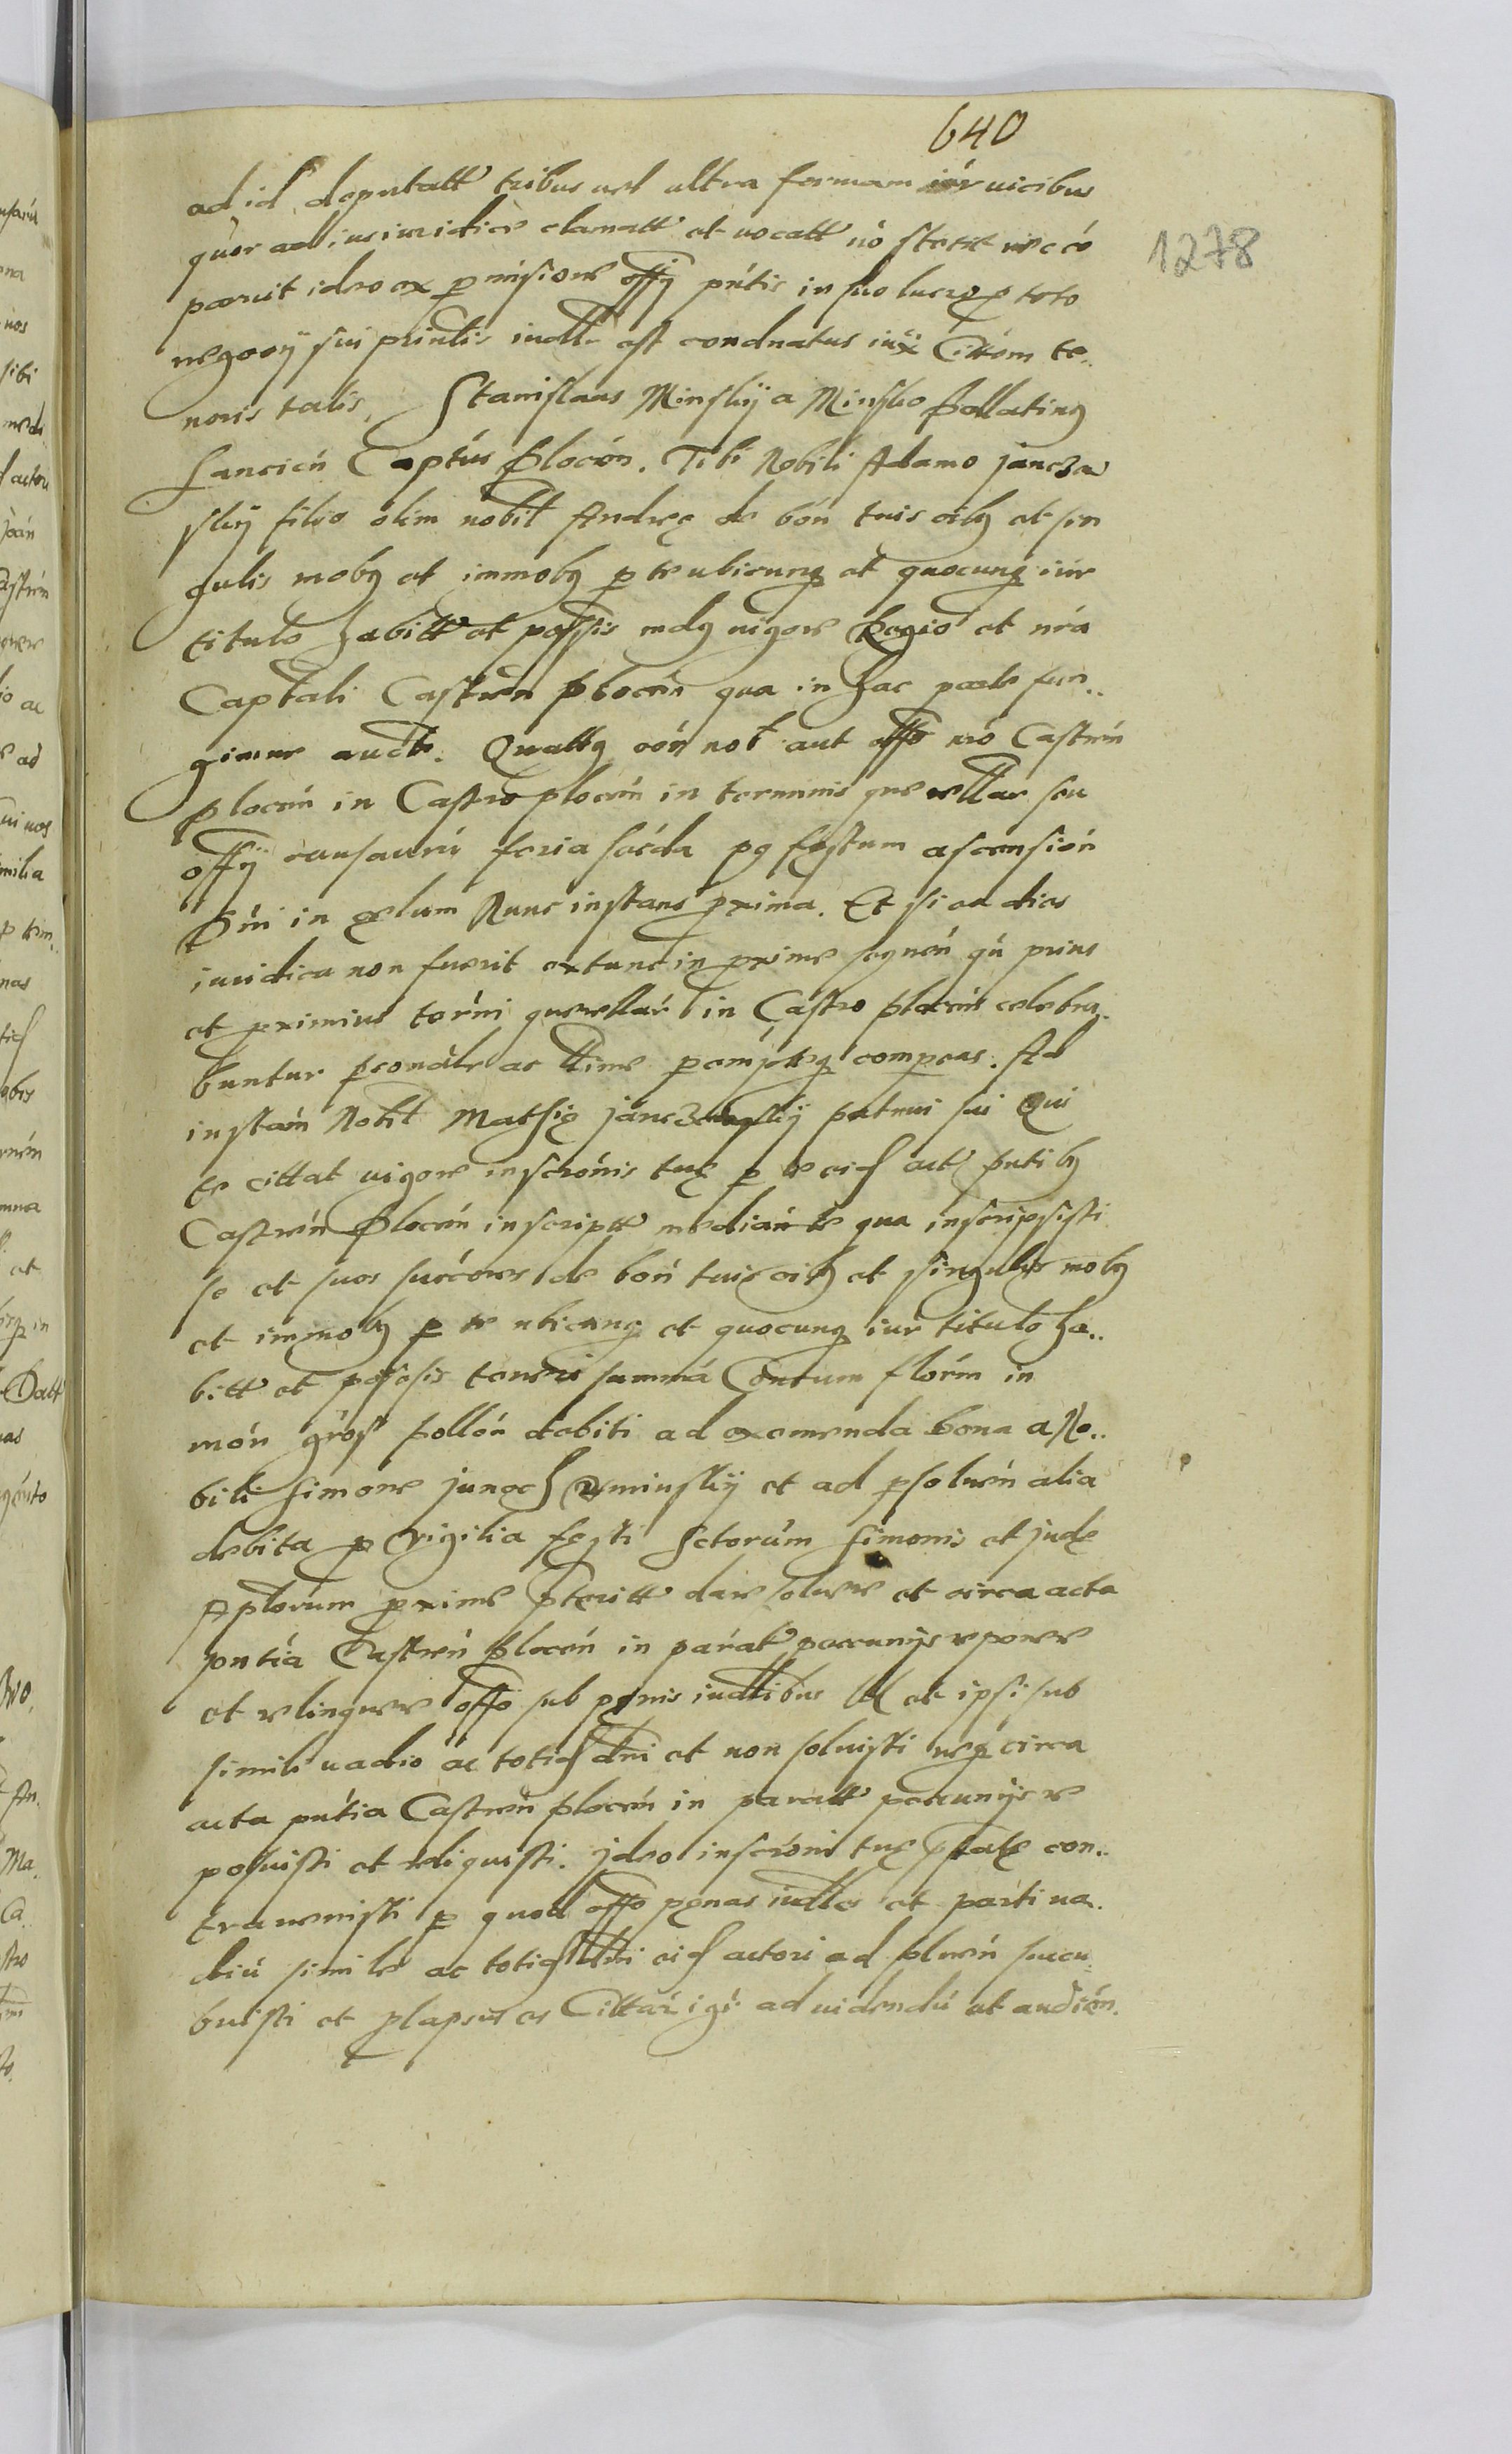 640
1278
ad id deputatt tribus vel ultra formam iur vicibus
quor ad ius iuridice clamatt et vocatt no stetit nec co
paruit ideo ex p misione offy pntis in suo lucro p toto
negocy sui printlis iudlr est condnatus iux Cittom te..
noris talis. Stanislaus Minskij a Minsko Pallating
Lancicn Captus Plocen. Tibi Nobili Adamo jancze
skij filio olim nobil Andreę de bon tuis oibg et sin
gulis mobg et immobg p te ubicunq et quocunq iur
titulo habitt et possis mdg vigore Regio et nra
Captali Castren Plocen qua in hac parte fun..
gimur aucte. Quattg cor nob aut offo nro Castren
plocen in Castro plocen in terminis querellar seu
offy causarum feria secda pg festum ascension
Dni in celum Nunc instans pxima. Et si ea dies
iuridica non fuerit extunc in pxime sequen qu prius
et pximius termi querellar in Castro plocen celebra..
buntur psonalr ac ttime pemptq compeas. Ad
instan Nobil Mathię janczewskij patrui sui Qui
te cittat vigore inscronis tuę p te eid act pntibg
Castren Plocen inscriptt mediante qua inscripsisti
se et suos succores de bon tuis oibg et singulis mobg
et immobg p te ubicunq et quocunq iur titulo ha..
bitt et possis teneris summa Centum floren in
mon gros pollon debiti ad exemenda bona a No..
bili Simone junoch Uminskij et ad psolven alia
debita p vigilia festi Sctorum Simonis et judę
Aplorum pxime pteritt dare solvere et circa acta
pntia Castren Plocen in parat peccunijs reponere
et relinquere offo sub penis iudlibus Et et ipsi sub
simili vadio ac toties dni et non solvisti neq circa
acta pntia Castren plocen in paratt peccunijs re
posuisti et reliquisti. jdeo inscroni tuę pfatę con..
travenisti p quod offo penas iudles et parti va..
diu simile ac toties dni eid actori ad solven succu..
buisti et plapsus es Cittar igr ad videndu et audien.